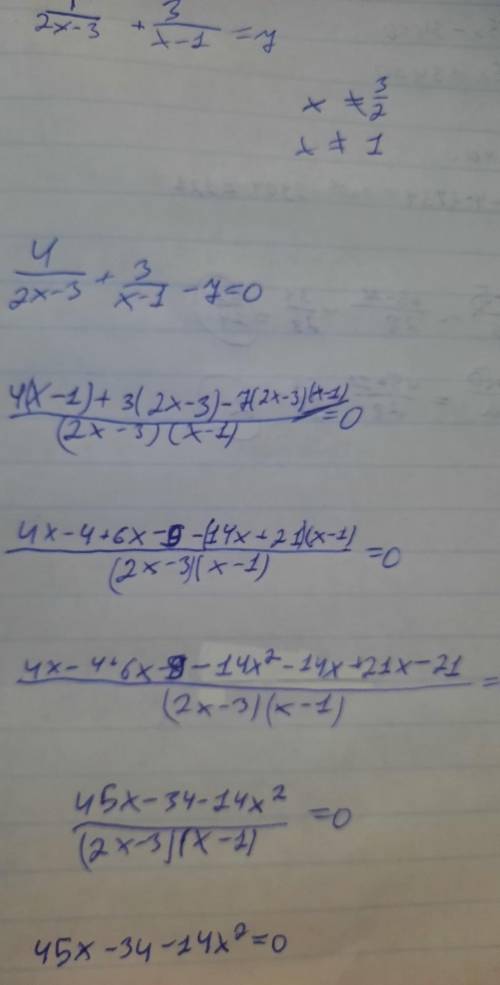 /(2x-3) + 3/(x-1) = 7
x ≠ 3/2
x ≠ 1
4/(2x-3) + 3/(x-1) - 7=0
(4(x-1)+3(2x-3)-7(2x-3)(x-1))/((2x-3)(x-1)) =0
(4x-4+6x-9-(14x+21)(x-1))/((2x-3)(x-1)) =0
(4x-4+6x-9-14x²-14x+21x-21)/((2x-3)(x-1)) =
(45x-34-14x²)/((2x-3)(x-1)) =0
45x-34-14x²=0